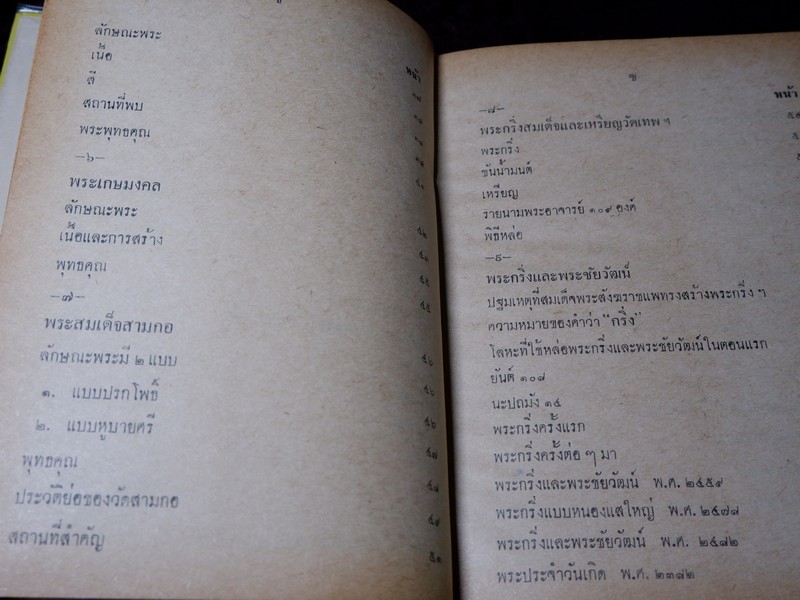 หน้า
ลักษณะพระ
เนื้อ
สี
สถานที่พบ
พระพุทธคุณ
—๖—
พระเกษมงคล
ลักษณะพระ ๔๒
เนื้อและการสร้าง
พุทธคุณ
—๗—
พระสมเด็จสามกอ
ลักษณะพระมี ๒ แบบ ๔๖
๑. แบบปรกโพธิ์ ๔๖
๒. แบบหูบายศรี ๔๖
พุทธคุณ ๔๗
ประวัติย่อของวัดสามกอ
สถานที่สำคัญ ๔๙
๕๑
ข
หน้า
—๘—
พระกริ่งสมเด็จและเหรียญวัดเทพ ฯ
พระกริ่ง
ขันน้ำมนต์
เหรียญ
รายนามพระอาจารย์ ๑๐๙ องค์
พิธีหล่อ
—๙—
พระกริ่งและพระชัยวัฒน์
ปฐมเหตุที่สมเด็จพระสังฆราชแพทรงสร้างพระกริ่ง ฯ
ความหมายของคำว่า "กริ่ง"
โลหะที่ใช้หล่อพระกริ่งและพระชัยวัฒน์ในตอนแรก
ยันต์ ๑๐๘
นะปถมัง ๑๔
พระกริ่งครั้งแรก
พระกริ่งครั้งต่อ ๆ มา
พระกริ่งและพระชัยวัฒน์ พ.ศ. ๒๔๕๙
พระกริ่งแบบหนองแสใหญ่ พ.ศ. ๒๔๗๘
พระกริ่งและพระชัยวัฒน์ พ.ศ. ๒๔๘๒
พระประจำวันเกิด พ.ศ. ๒๓๘๒